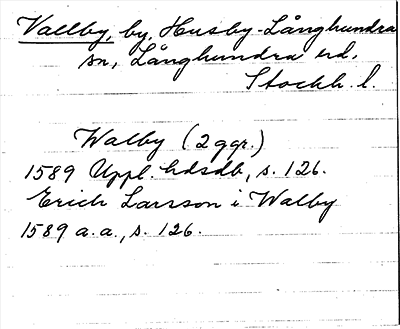 Vallby, by, Husby-Långhundra
sn, Långhundra hd,
Stockh. l.
Walby (2 ggr.)
1589 Uppl. hdsdb, s. 126.
Erich Larsson i Walby
1589 a.a., s. 126.